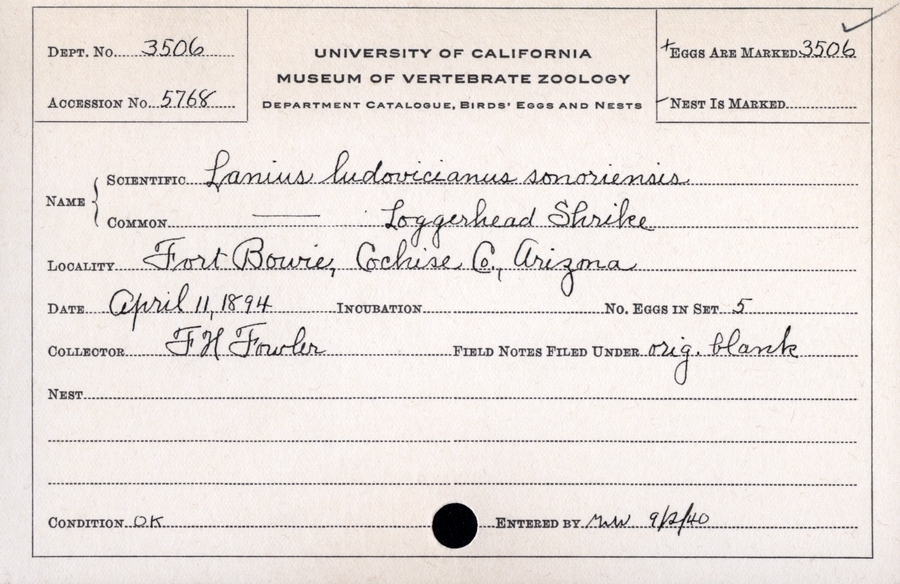 DEPT. NO. 3506
UNIVERSITY OF CALIFORNIA
MUSEUM OF VERTEBRATE ZOOLOGY
DEPARTMENT CATALOGUE, BIRDS' EGGS AND NESTS
+EGGS ARE MARKED 3506
ACCESSION NO. 5768
–NEST IS MARKED
NAME
SCIENTIFIC Lanius ludovicianus sonoriensis
COMMON —— Loggerhead Shrike
LOCALITY Fort Bowie, Cochise Co., Arizona
DATE April 11, 1894 INCUBATION NO. EGGS IN SET 5
COLLECTOR F H Fowler FIELD NOTES FILED UNDER orig. blank
NEST
CONDITION OK ENTERED BY 9/2/40